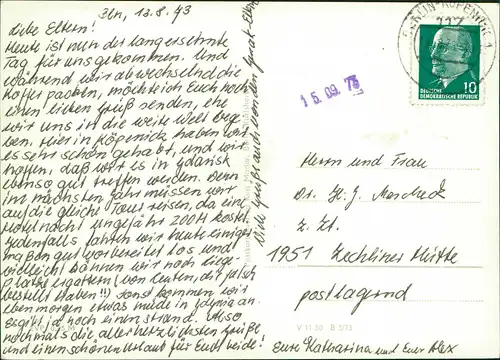 Bln, 13.8.73
Liebe Eltern!
Heute ist nun der langersehnte
Tag für uns gekommen. Und
während wir abwechselnd die
Koffer packen, möchte ich Euch noch
einen lieben Gruß senden, ehe
wir uns in die weite Welt bege-
ben. Hier in Köpenick haben wir
es sehr schön gehabt, und wir
hoffen, daß wir es in Gdansk
ebenso gut treffen werden. Denn
im nächsten Jahr müssen wir
auf die gleiche Tour reisen, da eine
Hotelnacht ungefähr 200 M kostet.
Jedenfalls fahren wir heute einiger-
maßen gut vorbereitet los und
vielleicht können wir noch Liege-
plätze ergattern (von Leuten, die falsch
bestellt haben!!) Sonst kommen wir
übermorgen etwas müde in Gdynia an.
es gibt ja noch einen Strand. Also
nochmals die allerherzlichsten Grüße
und einen schönen Urlaub für Euch beide!
Viele Grüße auch von den
BERLIN-KÖPENICK 1
117
10
DEUTSCHE
DEMOKRATISCHE REPUBLIK
15.09.73
Herrn und Frau
Dr. H. J.
z. Zt.
1951 Zechliner Hütte
postlagernd
V 11 50 B 5/73
Eure Katharina und Euer Alex